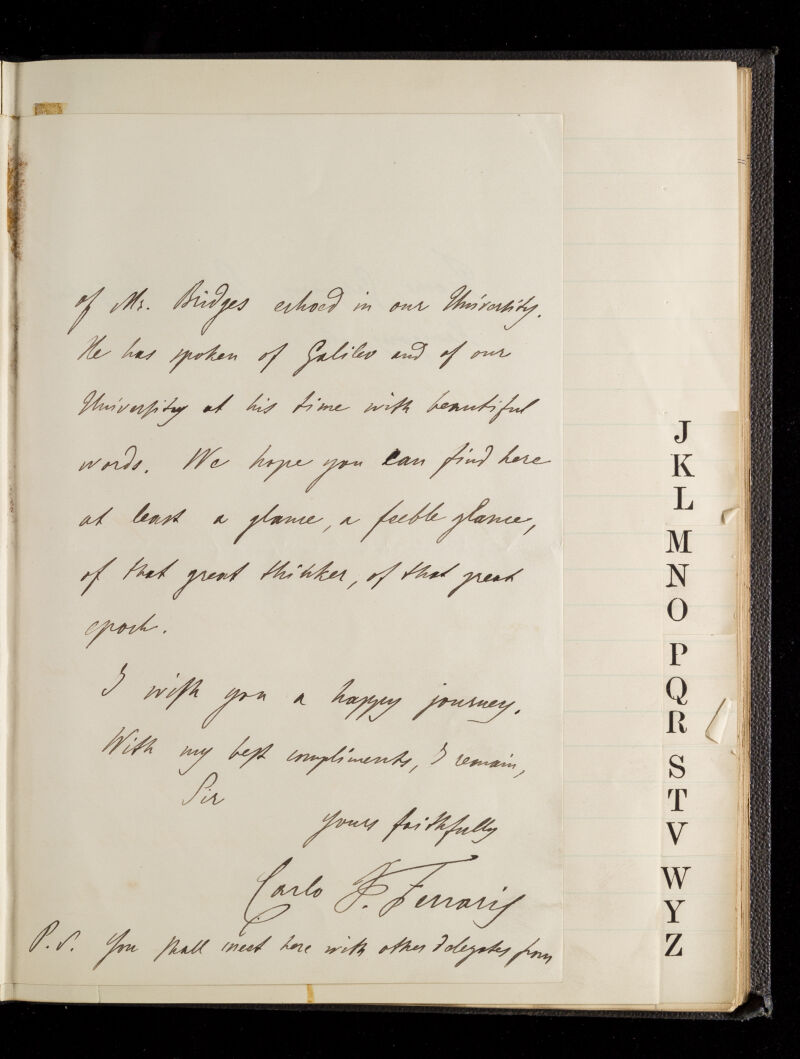 of Mr. Bridges echoed in our University.
He has spoken of Galileo and of our
University at his time with beautiful
words. We hope you can find here
at least a glance, a feeble glance,
of that great thinker, of that great
epoch.
I wish you a happy journey.
With my best compliments, I remain,
Sir
Yours faithfully
Carlo F. Ferraris
P.S. You shall meet here with other delegates from
J
K
L
M
N
O
P
Q
R
S
T
V
W
Y
Z